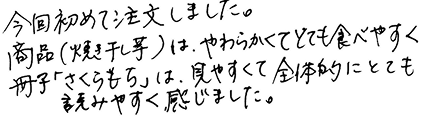 今回初めて注文しました。
商品(焼き干し芋)は、やわらかくてとても食べやすく
冊子「さくらもち」は、見やすくて全体的にとても
読みやすく感じました。